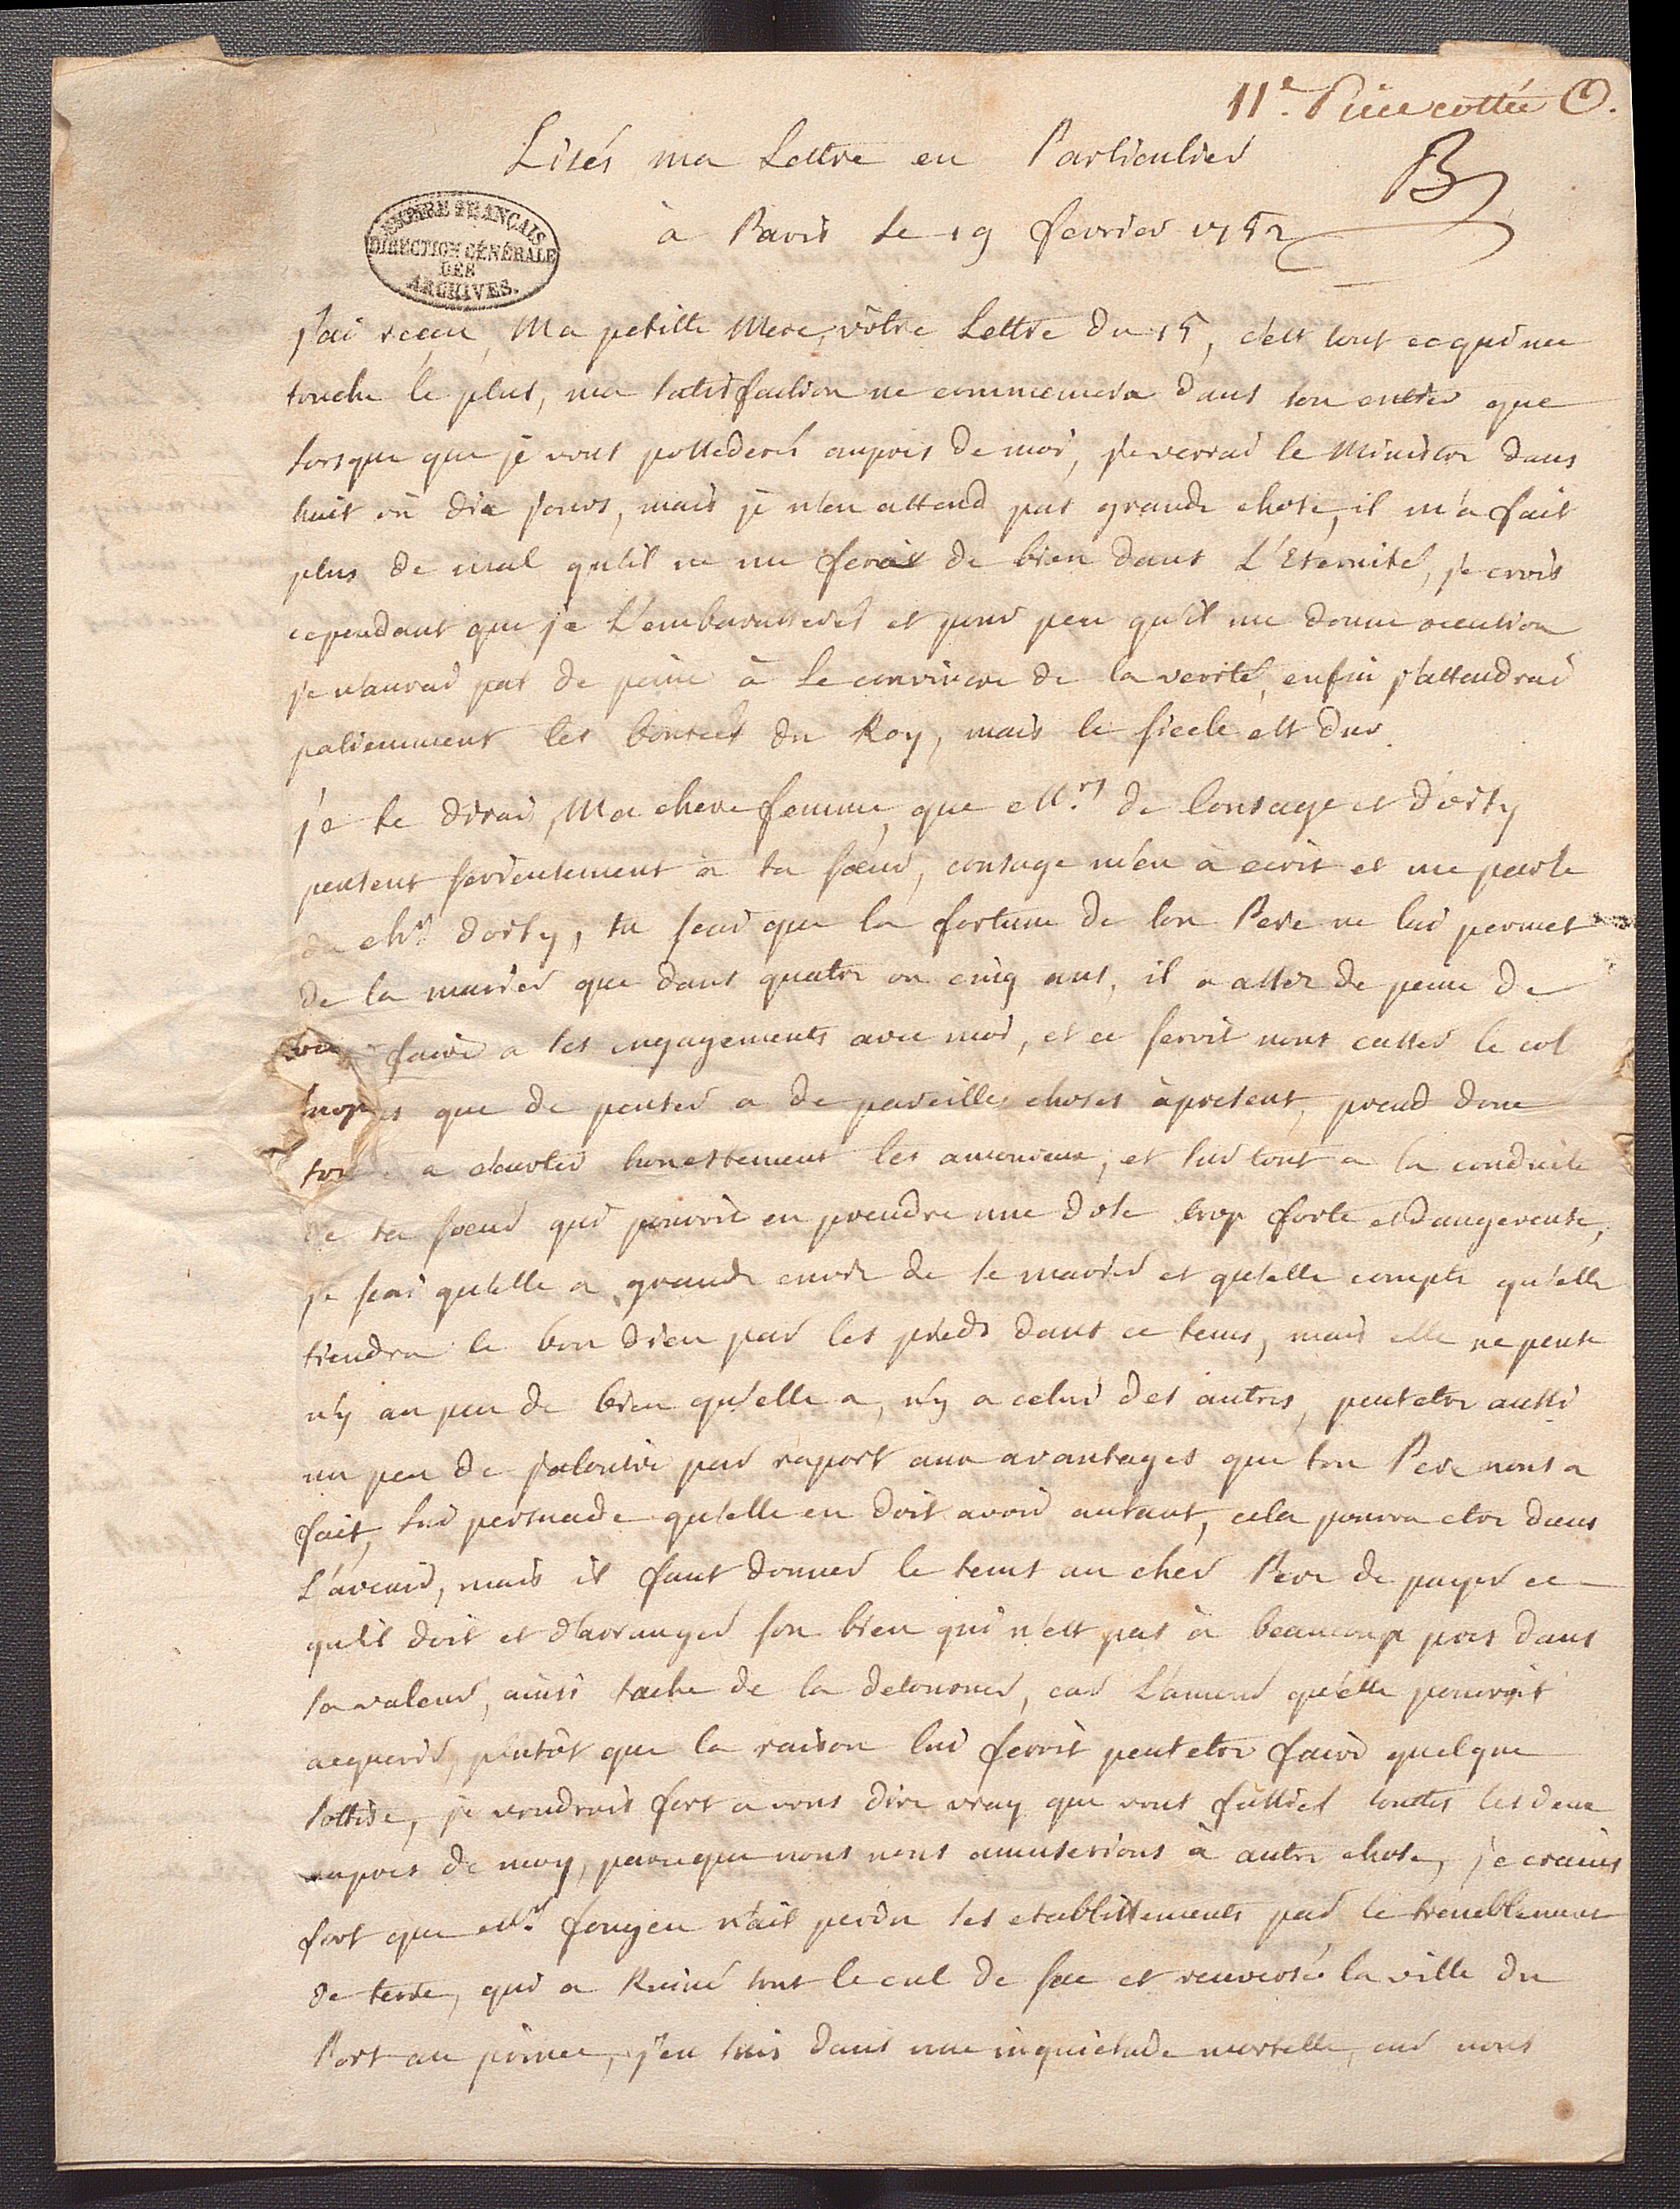 11e. Piece cottée O.
Lisés ma Lettre en Particulier
B
à Paris le 19 fevrier 1752
EMPIRE FRANÇAIS
DIRECTION GÉNÉRALE
DES
ARCHIVES.
J'ai receu, Ma petitte Mere, vôtre Lettre du 15, c'est tout ce qui me
touche le plus, ma satisfaction ne commencera dans son entier que
lorsque que je vous possederés aupres de moi, je verrai le Ministre dans
huit ou dix jours, mais je n'en attend pas grande chose, il m'a fait
plus de mal qu'il ne me ferait de bien dans L'Eternité, je crois
cependant que je L'embarasserés et pour peu qu'il me donne occasion
je n'aurai pas de peine à Le convincre de la verité, enfin j'attendrai
patiemment les bontés du Roy, mais le siecle est dur.
je te dirai, Ma chere femme, que Mrs de Consage et d'orty
pensent serieusement a ta sœur, consage m'en à ecrit et me parle
du chr dorty, tu scai que la fortune de ton Pere ne lui permet
de la marier que dans quatre ou cinq ans, il a assez de peine de
faire a ses engagements avec moi, et ce seroit nous casser le col
que de penser a de pareilles choses àpresent, prend donc
a ecarter honettement les amoureux, et sur tout a la conduite
de ta sœur qui pouroit en prendre une dose trop forte et dangereuse,
je scai qu'elle a grande envie de se marier et qu'elle compte qu'elle
tiendra le bon Dieu par les pieds dans ce tems, mais elle ne pense
n'y au peu de bien qu'elle a, n'y a celui des autres, peutetre aussi
un peu de jalousie par raport aux avantages que ton Pere nous a
fait, lui persuade qu'elle en doit avoir autant, cela pourra etre dans
L'avenir, mais il faut donner le tems au cher Pere de payer ce
qu'il doit et d'arranger son bien qui n'est pas à beaucoup pres dans
sa valeur, ainsi tache de la detourner, car L'amour qu'elle pouroit
acquerir, plutôt que la raison lui feroit peutetre faire quelque
sottise, je voudrois fort a vous dire vray que vous fussiés touttes les deux
aupres de moy, parceque nous nous amuserions à autre chose, je crains
fort que Mr fougeu n'ait perdu ses etablissements par le tremblement
de terre, qui a Ruiné tout le cul de sac et renversé la ville du
Port au prince, j'en suis dans une inquietude mortelle, car nous